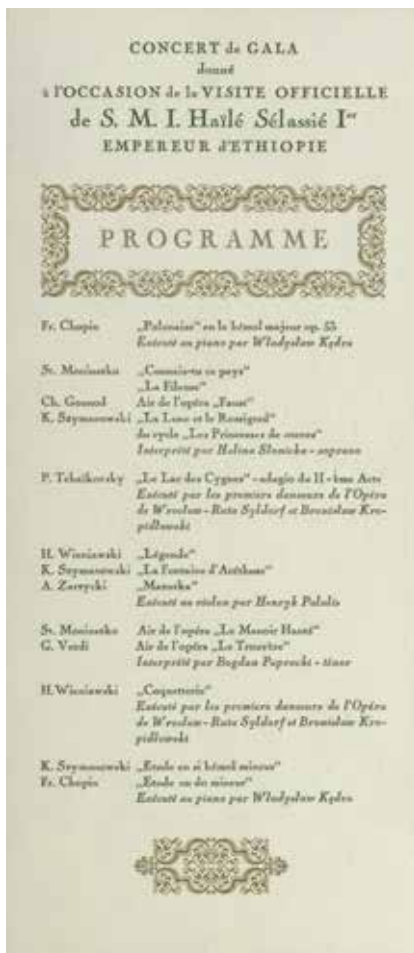 CONCERT de GALA
donné
à l'OCCASION de la VISITE OFFICIELLE
de S. M. I. Haïlé Sélassié Ier
EMPEREUR d'ETHIOPIE
PROGRAMME
Fr. Chopin „Polonaise” en la bémol majeur op. 53
Exécuté au piano par Władysław Kędra
St. Moniuszko „Connais-tu ce pays”
„La Fileuse”
Ch. Gounod Air de l'opéra „Faust”
K. Szymanowski „La Lune et le Rossignol”
du cycle „Les Princesses de contes”
Interprété par Halina Słonicka - soprano
P. Tchaïkovsky „Le Lac des Cygnes” - adagio du II-ème Acte
Exécuté par les premiers danseurs de l'Opéra
de Wrocław - Ruta Syldorf et Bronisław Kro-
pidłowski
H. Wieniawski „Légende”
K. Szymanowski „La fontaine d'Aréthuse”
A. Zarzycki „Mazurka”
Exécuté au violon par Henryk Palulis
St. Moniuszko Air de l'opéra „Le Manoir Hanté”
G. Verdi Air de l'opéra „Le Trouvère”
Interprété par Bogdan Paprocki - ténor
H. Wieniawski „Coquetterie”
Exécuté par les premiers danseurs de l'Opéra
de Wrocław - Ruta Syldorf et Bronisław Kro-
pidłowski
K. Szymanowski „Etude en si bémol mineur”
Fr. Chopin „Etude en do mineur”
Exécuté au piano par Władysław Kędra